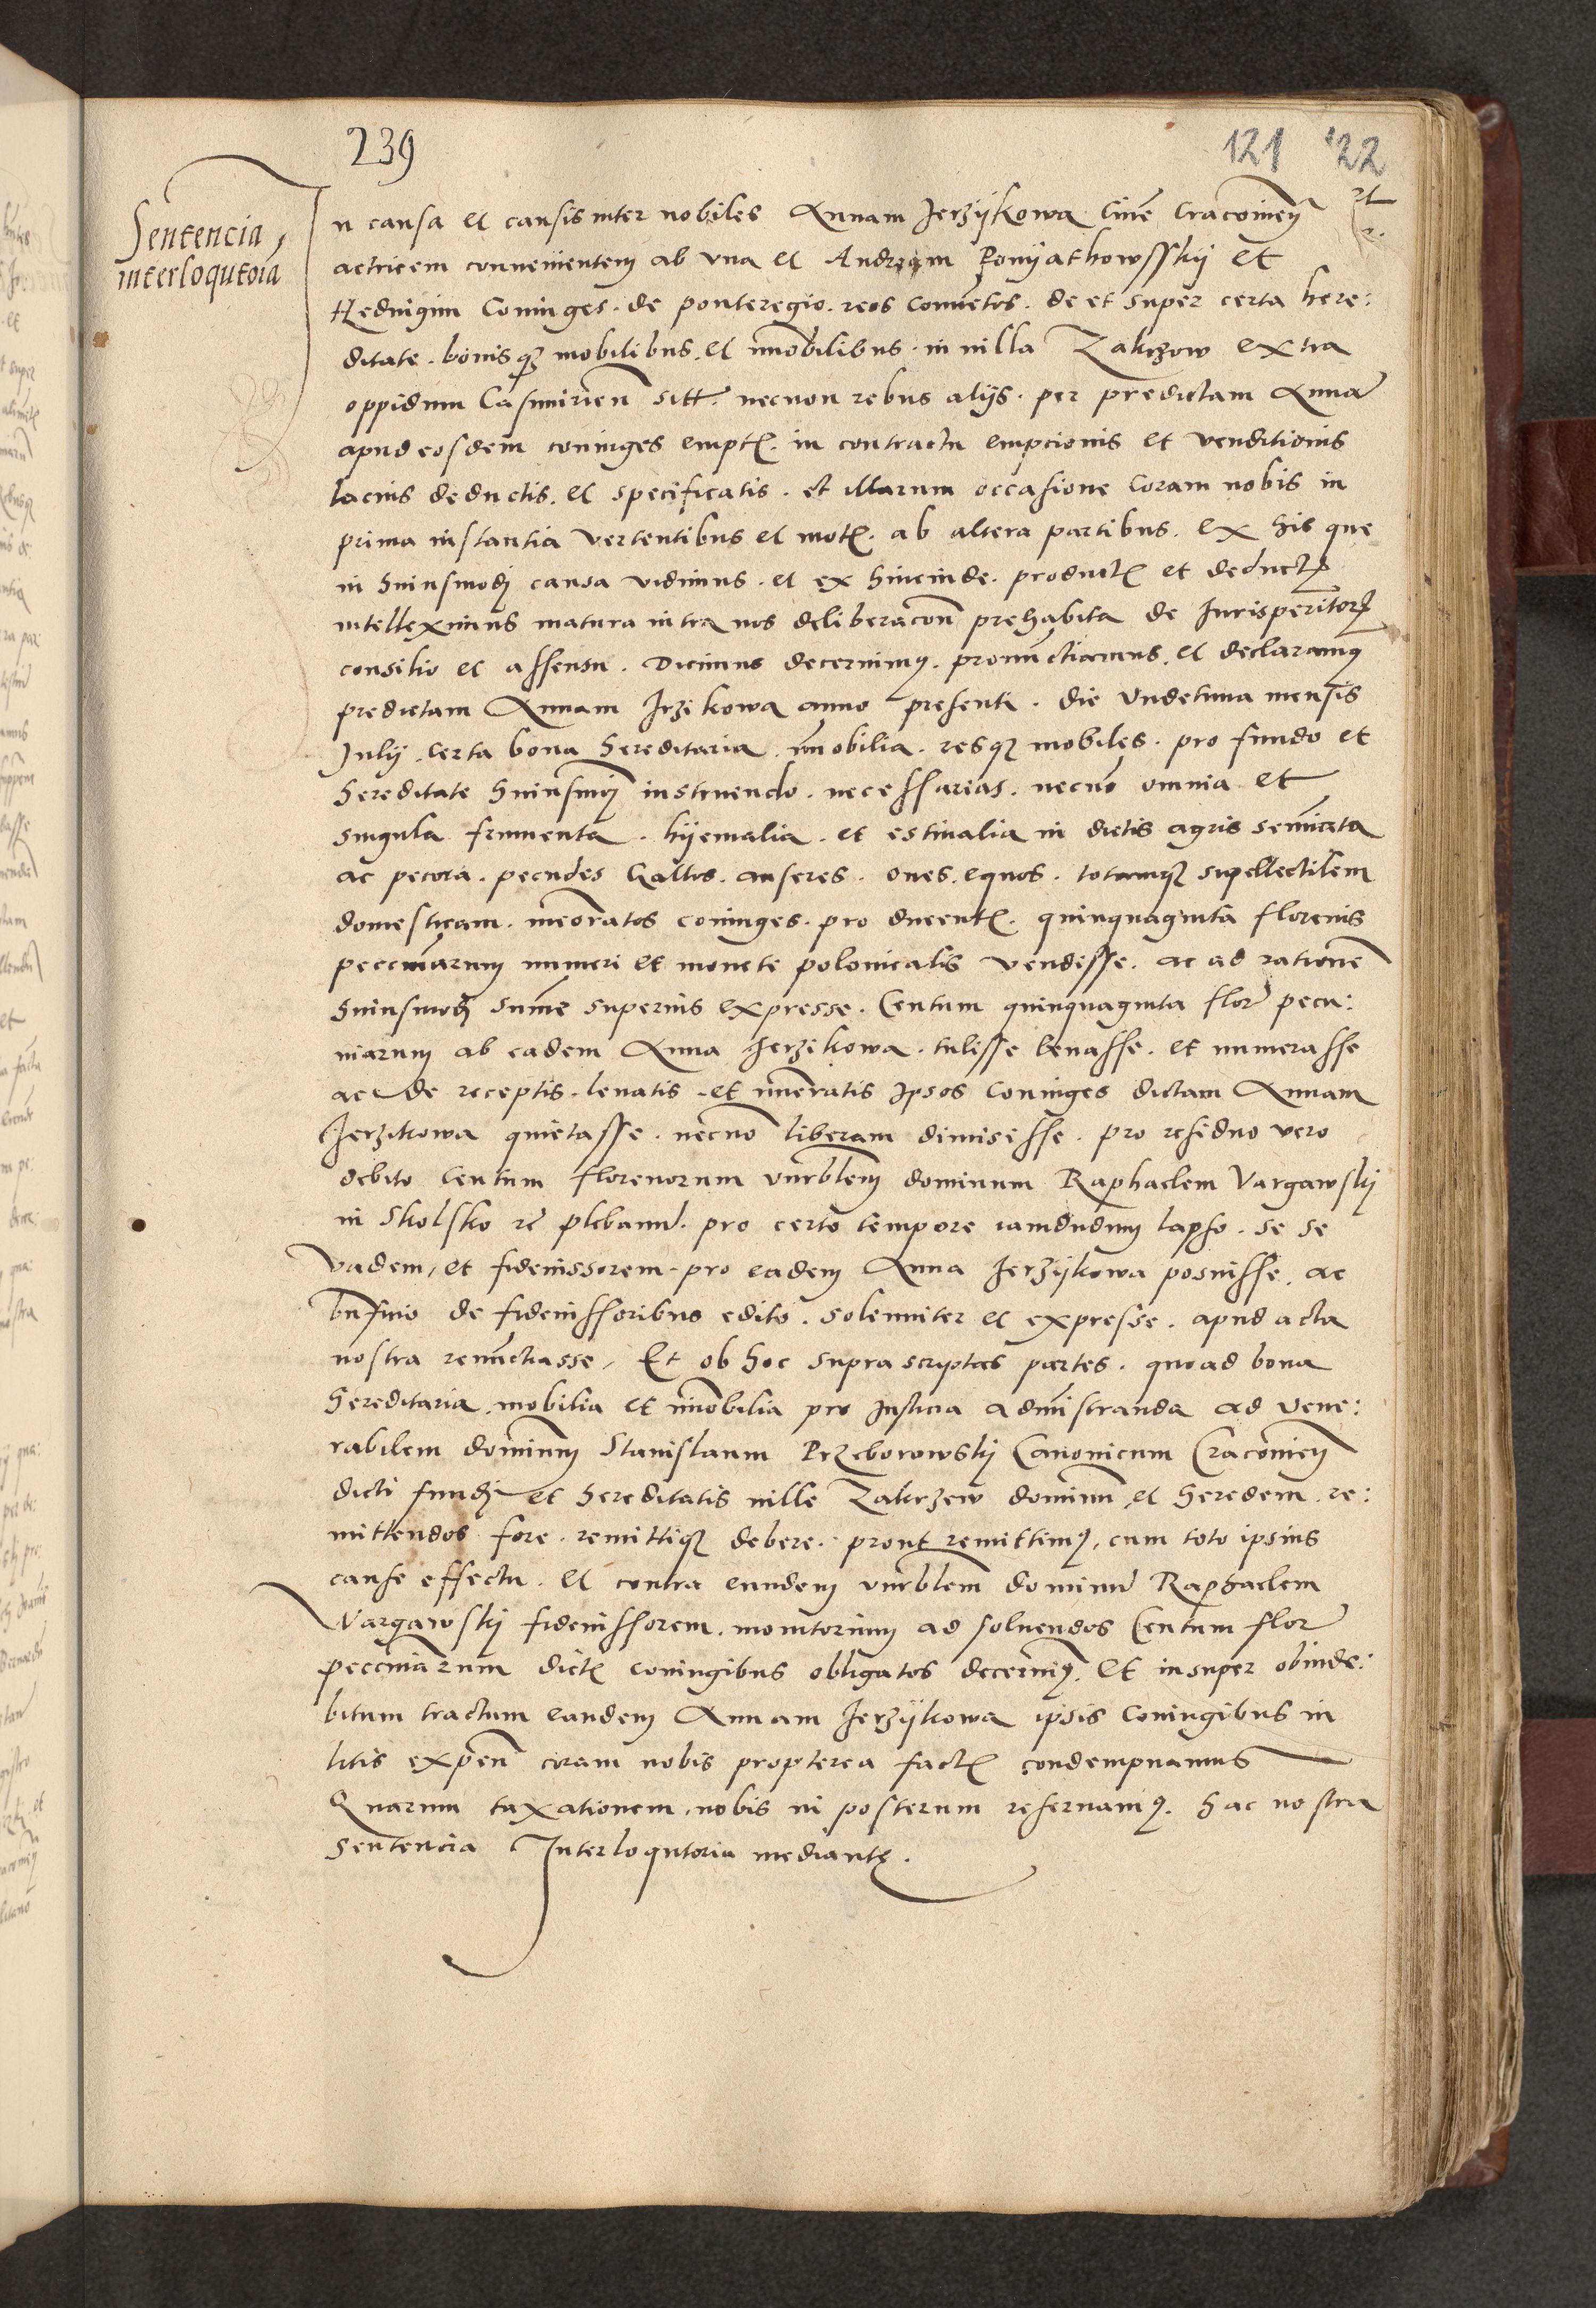 239
121 122
Sentencia
interloqutoia
In causa et causis inter nobiles Annam Jerzijkowa Ciuē Cracouień
actricem conuenientem ab vna et Andream Ponijathowsskij et
Heduigim Coniuges . de ponteregio . reos Conuētos . de et super certa here:
ditate . bonisqȝ mobilibus . et īmobilibus . in villa Zakrzow extra
oppidum Casimirieñ sitt . necnon rebus alijs . per predictam Annā
apud eosdem coniuges empt . in contractu empcionis et venditionis
lacius deductis . et specificatis . et illarum occasione Coram nobis in
prima instantia vertentibus et mot . ab altera partibus . Ex his que
in huiusmodj causa vidimus . et ex hincinde . product et deduct
intelleximus matura intra nos deliberacoñ prehabita de Jurisperitorꝝ
consilio et assensu . Dicimus decernimꝰ . pronūctiamus . et declaramꝰ
predictam Annam Jrzikowa anno presenti . die vndetima mensis
Julij . certa bona hereditaria . īmobilia . resqȝ mobiles . pro fundo et
hereditate huiusmōj instruendo . necessarias . necnō omnia et
singula frumenta . hijemalia . et estiualia in dictis agris semīata
ac pecora . pecudes Gallos . anseres . oues . equos . totamqȝ supellectilem
domesticam . meōratos coniuges . pro ducent . quinquaginta florenis
peccuniarum numeri et monete polonicalis vendisse . ac ad rationē
huiusmodj sum̄e superius expresse . Centum quinquaginta flor pecu:
niarum ab eadem Anna Jerzikowa . tulisse leuasse . et numerasse
ac de receptis . leuatis . et nūeratis ipsos Coniuges dictam Annam
Jerzikowa quietasse . necno liberam dimisisse . pro residuo vero
debito Centum florenorum vnrblem dominum Raphaelem Vargawskij
in Skolsko rē plebanū . pro certo tempore iamdudum lapso . se se
vadem, et fideiussorem pro eadem Anna Jerzijkowa posuisse . ac
bnficio de fideiussoribus edito . solenniter et expresse . apud acta
nostra renūctiasse, Et ob hoc supra scriptas partes . quoad bona
hereditaria . mobilia et im̄obilia pro Justicia admīstranda ad vene:
rabilem dominum Stanislaum Przeborowskij Canonicum Cracouień
dicti fundj et hereditatis ville Zakrzew dominū et heredem . re:
mittendos fore . remittiqȝ debere . prout remittimꝰ, cum toto ipsius
cause effectu . et contra eundem vnrblem dominū Raphaelem
Vargawskij fideiussorem . monitorium ad soluendos Centum flor
peccuniarum dict coniugibus obligatos decernimꝰ . Et insuper obinde:
bitum tractum eandem Annam Jerzijkowa ipsis Coniugibus in
litis expeñ coram nobis propterea fact condempnamus
Quarum taxationem . nobis in posterum reseruamꝰ . hac nostra
sentencia Interloqutoria mediante .